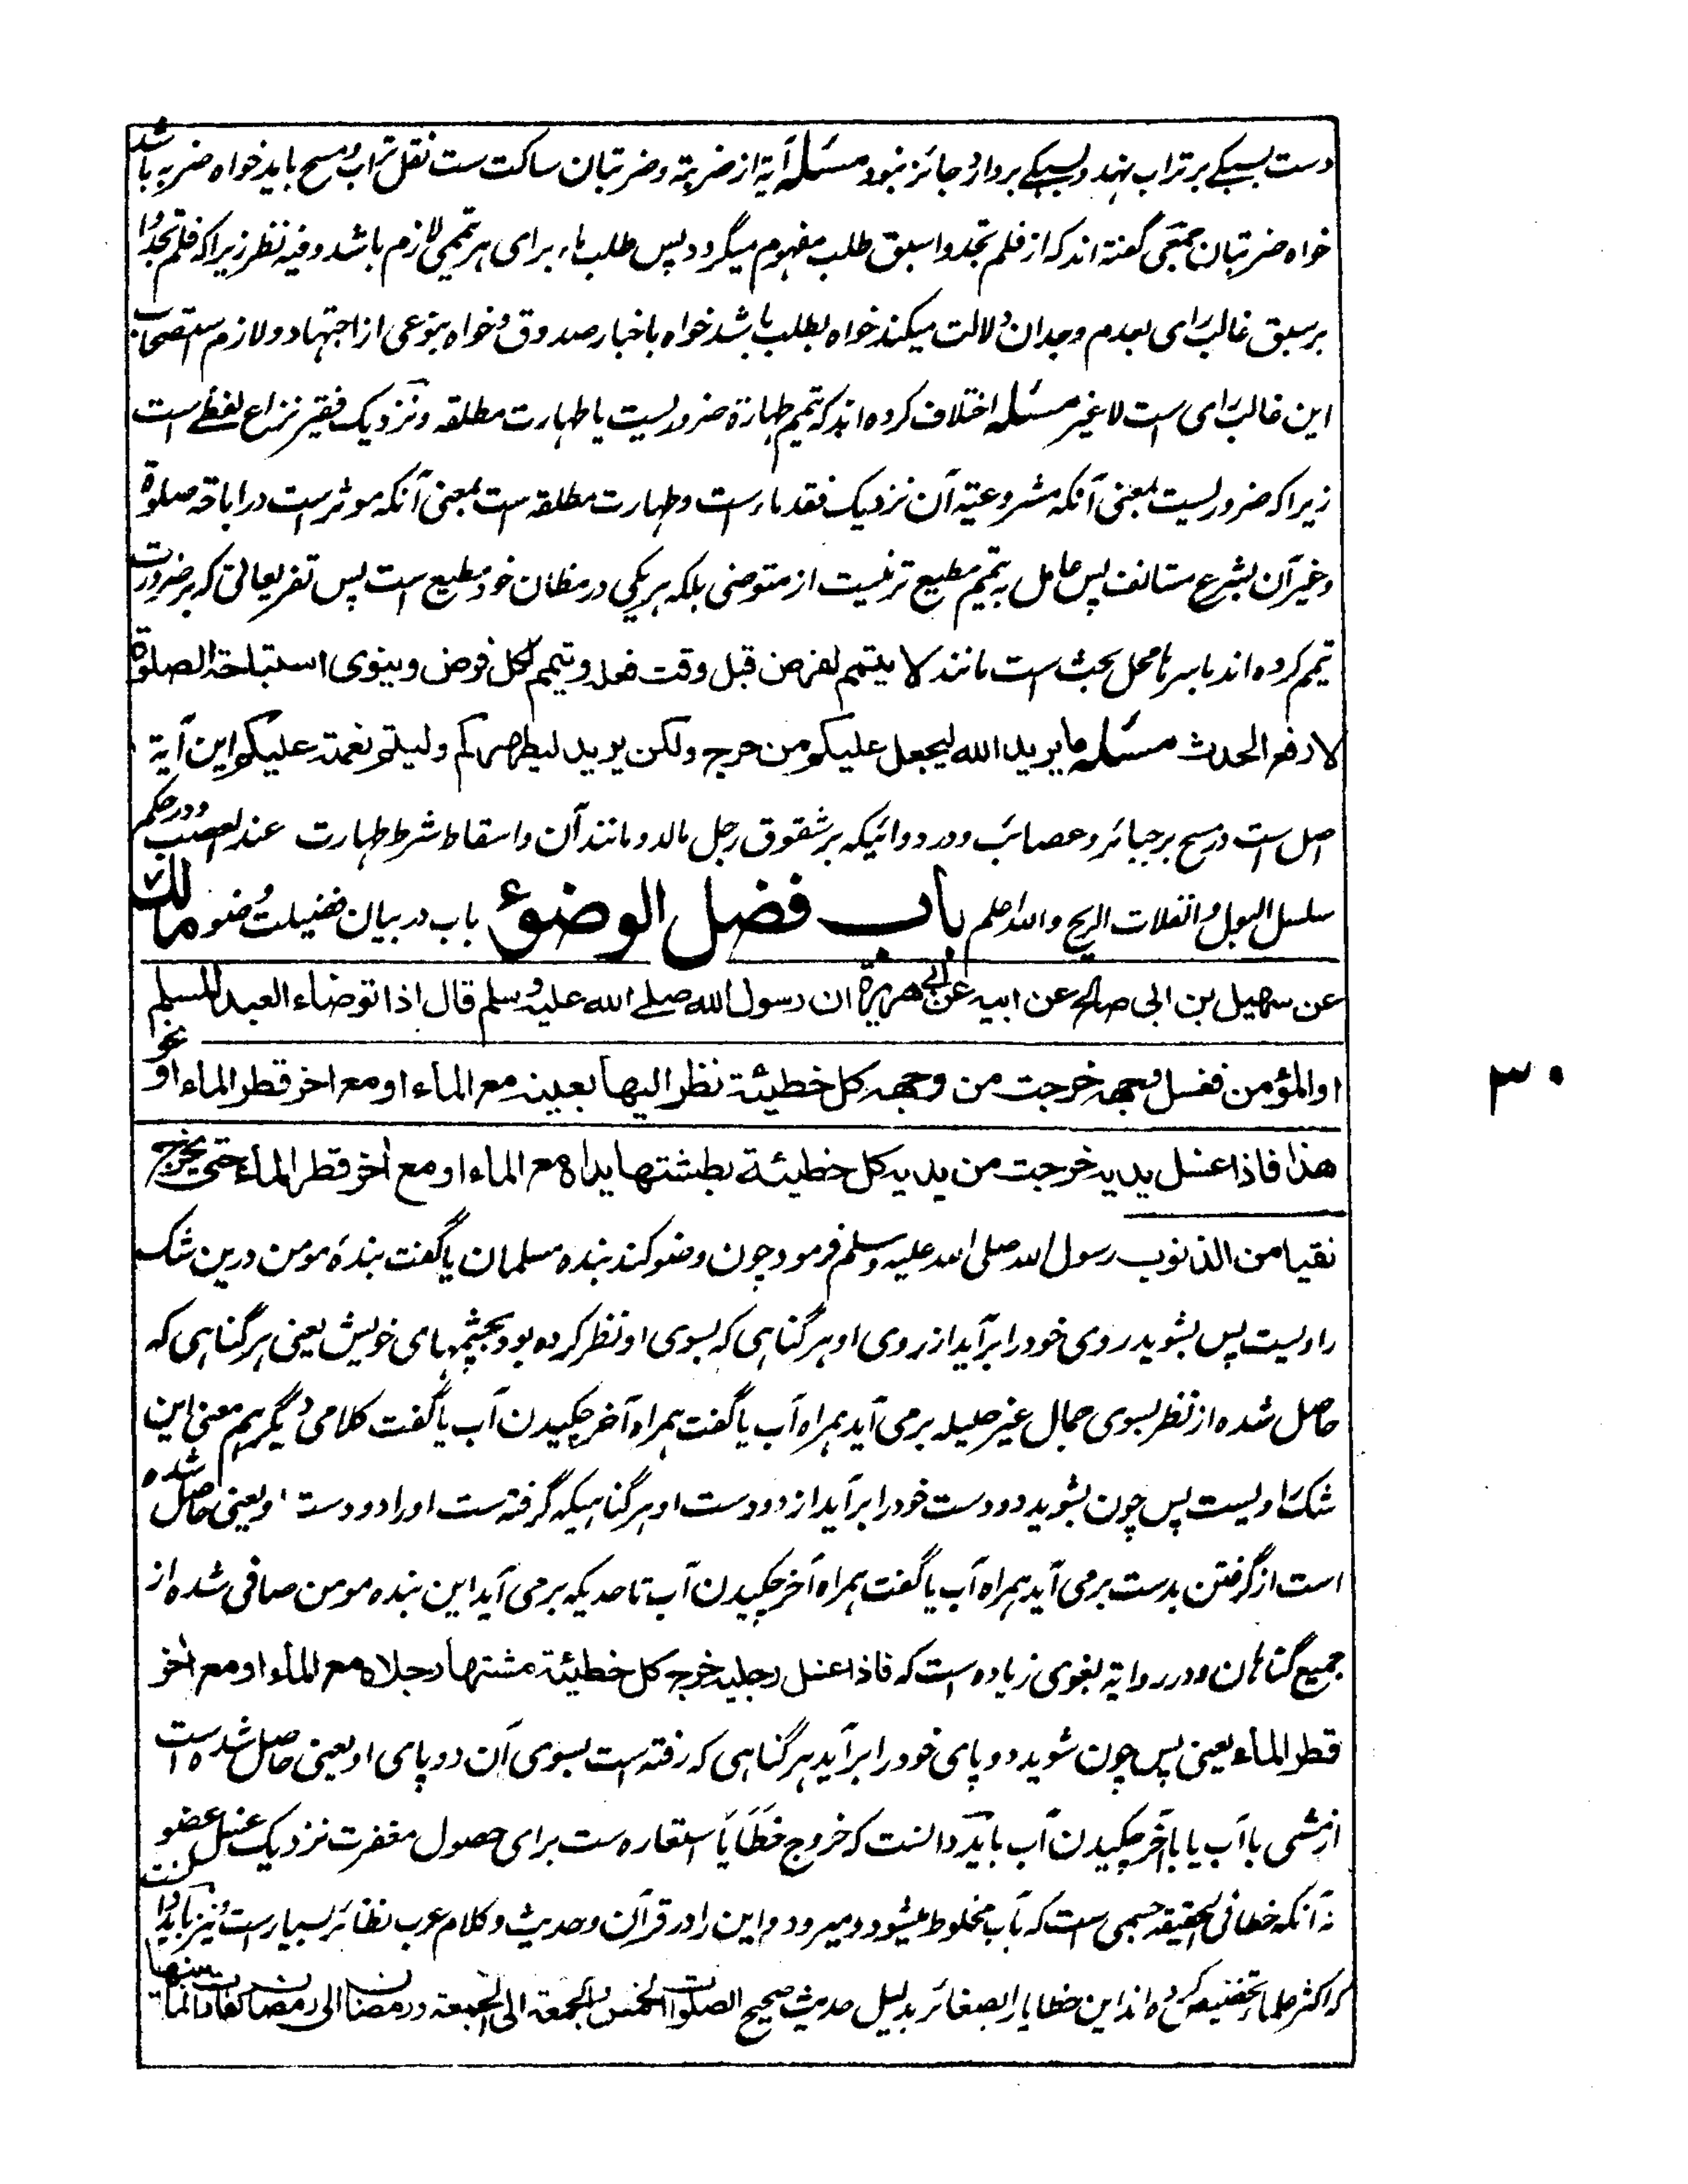 دست بسبکے برتراب نہند و بسبکے بردارد جائز نبود مسئلہ آیة از ضربة و ضربتان ساکت ست نقل تراب و مسح باید خواه ضربہ باشد
خواه ضربتان جمعی گفته اند کہ از فلم تجدوا سبق طلب مفهوم میگردد پس طلب ماء برای ہر تیممی لازم باشد و فیہ نظر زیرا کہ فلم تجدوا
بر سبق غالب رای بعدم وجدان دلالت میکند خواه بطلب باشد خواه باخبار صدوق و خواه بنوعی از اجتہاد و لازم استصحاب
این غالب رای است لا غیر مسئلہ اختلاف کرده اند کہ تیمم طہارة ضروریست یا طہارت مطلقہ و نزدیک فقیر نزاع لفظے است
زیرا کہ ضروریست بمعنی آنکہ مشروعیة آن نزدیک فقد ماء است و طہارت مطلقہ است بمعنی آنکہ موثر است در اباحة صلوة
و غیر آن بشرع مستانف پس عامل بہ تیمم مطیع تر نیست از متوضی بلکہ ہر یکی در مظان خود مطیع است پس تفریعاتی کہ بر ضرورت
تیمم کرده اند باسرہا محل بحث است مانند لا یتیمم لفرض قبل وقت فعلہ و یتیمم لکل فرض و ینوی استباحة الصلوة
لا رفع الحدث مسئلہ ما یرید الله لیجعل علیکم من حرج ولکن یرید لیطهرکم ولیتم نعمتہ علیکم این آیة
اصل است در مسح بر جبائر و عصائب و در دوائیکہ بر شقوق رجل مالد و مانند آن و اسقاط شرط طہارت عند و در حکم
سلسل البول و انفلات الریح والله اعلم باب فضل الوضوء باب در بیان فضیلت وضو مالك
عن سهیل بن ابی صالح عن ابیه عن ابی هریرة ان رسول الله صلے الله علیه وسلم قال اذا توضاء العبد المسلم
او المؤمن فغسل وجهه خرجت من وجهه کل خطیئة نظر الیها بعینه مع الماء او مع اخر قطر الماء او نحو
هذا فاذا غسل یدیه خرجت من یدیه کل خطیئة بطشتها یداه مع الماء او مع اخر قطر الماء حتی یخرج
نقیا من الذنوب رسول الله صلی الله علیه وسلم فرمود چون وضو کند بنده مسلمان یا گفت بندهٔ مومن درین شک
راویست پس بشوید روی خود را برآید از روی او ہر گناہی کہ بسوی او نظر کرده بود بچشمہای خویش یعنی ہر گناہی کہ
حاصل شده از نظر بسوی جمال غیر حلیلہ برمی آید ہمراه آب یا گفت ہمراه آخر چکیدن آب یا گفت کلامی دیگر ہم معنی این
شک راویست پس چون بشوید دو دست خود را برآید از دو دست او ہر گناہیکہ گرفته ست او را دو دست او یعنی حاصل شده
است از گرفتن بدست برمی آید ہمراه آب یا گفت ہمراه آخر چکیدن آب تا حدیکہ برمی آید این بنده مومن صافی شده از
جمیع گناہان و در روایة بغوی زیاده است کہ فاذا غسل رجلیه خرج کل خطیئة مشتها رجلاه مع الماء او مع اخر
قطر الماء یعنی پس چون شوید دو پای خود را برآید ہر گناہی کہ رفته است بسوی آن دو پای او یعنی حاصل شده است
از مشی با آب یا با آخر چکیدن آب باید دانست کہ خروج خطایا استعاره ست برای حصول مغفرت نزدیک غسل عضو
نہ آنکہ خطا فی الحقیقہ جسمی است کہ بآب مخلوط میشود و میرود و این را در قرآن و حدیث و کلام عرب نظائر بسیار است و نیز باید دانست
کہ اکثر علما تخصیص کرده اند این خطایا را بصغائر بدلیل حدیث صحیح الصلوات الخمس والجمعة الی الجمعة و رمضان الی رمضان کفارات لما بینها
۳۰